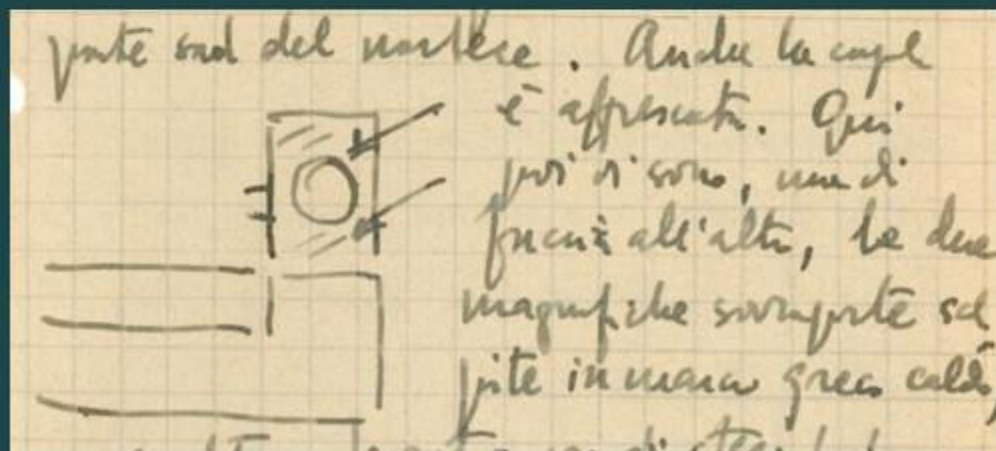 parte sud del nartece. Anche la cupola
è affrescata. Qui
poi vi sono, una di
fronte all'altra, le due
magnifiche sovrapporte scol
pite in marmo greco caldo,